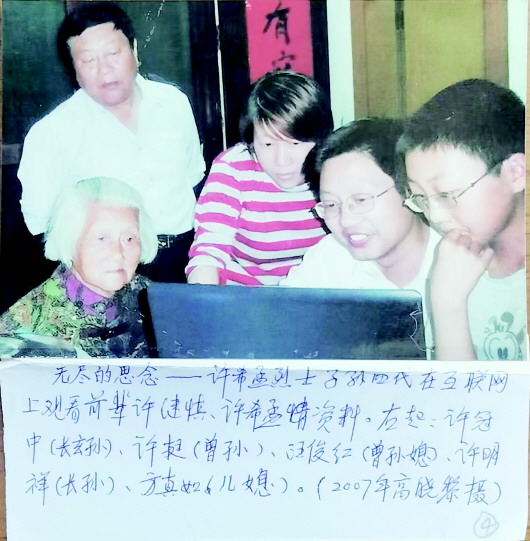 有
无尽的思念——许希孟烈士子孙四代在互联网
上观看前辈许建慎、许希孟情资料。右起:许冠
中(长玄孙)、许挺(曾孙)、汪俊红(曾孙媳)、许明
祥(长孙)、方真如(儿媳)。(2007年高晓黎摄)
④